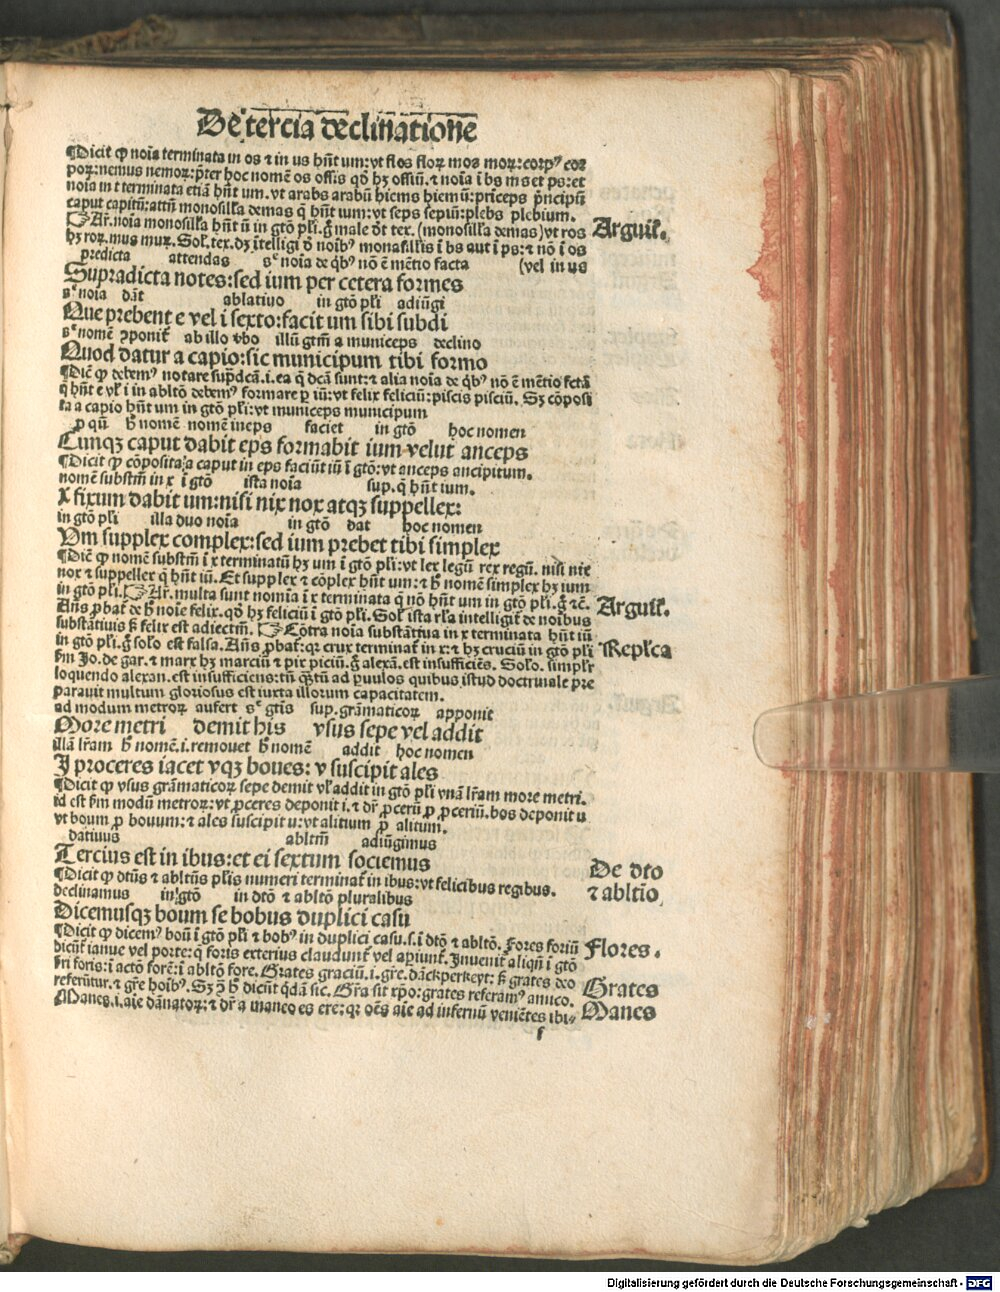 De tercia declinatione
¶Dicit ꝙ noīa terminata in os ⁊ in us hn̄t um: vt flos floꝝ mos moꝝ: corpꝰ cor
poꝝ: nemus nemoꝝ: p̄ter hoc nomē os ossis qd̄ hꝫ ossiū. ⁊ noīa ī bs ms et ps: et
noīa in t terminata etiā hn̄t um. vt arabs arabū hiems hiemū: prīceps pͥncipū
caput capitū: attn̄ monosill̄a demas q̄ hn̄t ium: vt seps sepiū: plebs plebium.
☞Ar̄. noīa monosill̄a hn̄t ū in gtō pl̄i. g̊ male dt̄ tex. (monosill̄a demas) vt ros
hꝫ roꝝ. mus muꝝ. Sol̄. tex. dꝫ ītelligi d̄ noībꝰ monasillis ī bs aut ī ps: ⁊ nō ī os
Arguit̄.
predicta attendas sᶜ noīa de qͥbꝰ nō ē mētio facta (vel in us
Supradicta notes: sed ium per cetera formes
sᶜ noīa dāt ablatiuo in gtō pl̄i adiūgi
Que prebent e vel i sexto: facit um sibi subdi
sᶜ nomē ꝯponit̄ ab illo v̄bo illū gtm̄ a municeps declino
Quod datur a capio: sic municipum tibi formo
¶Dic̄ ꝙ debemꝰ notare sup̄dc̄a. i. ea q̄ dc̄a sunt: ⁊ alia noīa de qͥbꝰ nō ē mētio fctā
q̄ hn̄t e vl̄ i in abltō debemꝰ formare p iū: vt felix feliciū: piscis pisciū. Sꝫ cōposi
ta a capio hn̄t um in gtō pl̄i: vt municeps municipum
ꝑ qū h̄ nomē nomē ineps faciet in gtō hoc nomen
Cunqꝫ caput dabit eps formabit ium velut anceps
¶Dicit ꝙ cōposita a caput in eps faciūt iū ī gtō: vt anceps ancipitum.
nomē substm̄ in x ī gtō ista noīa sup. q̄ hn̄t ium.
X fixum dabit um: nisi nix nox atqꝫ suppellex:
in gtō pl̄i illa duo noīa in gtō dat hoc nomen
Um supplex complex: sed ium prebet tibi simplex
¶Dic̄ ꝙ nomē substm̄ ī x terminatū hꝫ um ī gtō pl̄i: vt lex legū rex regū. nisi nix
nox ⁊ suppellex q̄ hn̄t iū. Et supplex ⁊ cōplex hn̄t um: ⁊ h̄ nomē simplex hꝫ ium
in gtō pl̄i. ☞Ar̄. multa sunt nomīa ī x terminata q̄ nō hn̄t um in gtō pl̄i. g̊ ⁊c̄.
Arguit̄.
Añs ꝓbat̄ de h̄ noīe felix. qd̄ hꝫ feliciū ī gtō pl̄i. Sol̄ ista rl̄a intelligit̄ de noībus
substātiuis ꝟ felix est adiectm̄. ☞Cōtra noīa substātiua in x terminata hn̄t iū
in gtō pl̄i. g̊ sol̄o est falsa. Añs ꝓbat̄: qꝛ crux terminat̄ in x: ⁊ hꝫ cruciū in gtō pl̄i
Repl̄ca
ẜm Jo. de gar. ⁊ marx hꝫ marciū ⁊ pix piciū. g̊ alexā. est insufficiēs. Sol̄o. simpl̄r
loquendo alexan. est insufficiens: tn̄ q̄tū ad puulos quibus istud doctrinale pre
parauit multum gloriosus est iuxta illorum capacitatem.
ad modum metroꝝ aufert sᶜ gtīs sup. grāmaticoꝝ apponit
More metri demit his vsus sepe vel addit
illā lr̄am h̄ nomē. i. remouet h̄ nomē addit hoc nomen
I proceres iacet vqꝫ boues: v suscipit ales
¶Dicit ꝙ vsus grāmaticoꝝ sepe demit vl̄ addit in gtō pl̄i vnā lr̄am more metri.
id est ẜm modū metroꝝ: vt ꝓceres deponit i. ⁊ dr̄ ꝓcerū ꝓ ꝓceriū. bos deponit u
vt boum ꝓ bouum: ⁊ ales suscipit u: vt alitium ꝓ alitum.
datiuus abltm̄ adiūgimus
Tercius est in ibus: et ei sextum sociemus
De dto
¶Dicit ꝙ dtūs ⁊ abltūs pl̄is numeri terminat̄ in ibus: vt felicibus regibus.
⁊ abltio
declinamus in gtō in dtō ⁊ abltō pluralibus
Dicemusqꝫ boum se bobus duplici casu
¶Dicit ꝙ dicemꝰ boū ī gtō pl̄i ⁊ bobꝰ in duplici casu. s. ī dtō ⁊ abltō. Fores foriū
Flores.
dicūt̄ ianue vel porte: q̄ foris exterius claudunt̄ vel apiunt̄. Inuenit̄ aliqn̄ ī gtō
ẜri foris: ī actō forē: ī abltō fore. Grates graciū. i. gr̄e. dāckperkeyt: ꝟ grates deo
Grates
referūtur. ⁊ gr̄e hoībꝰ. Sꝫ ꝯ̄ h̄ dicūt qͥdā sic. Gr̄a sit xp̄o: grates referamꝰ amico.
Manes. i. aīe dānatoꝝ: ⁊ dr̄ a maneo es ere: qꝛ oēs aīe ad infernū veniētes ibi⸗
Manes
f
Digitalisierung gefördert durch die Deutsche Forschungsgemeinschaft - DFG